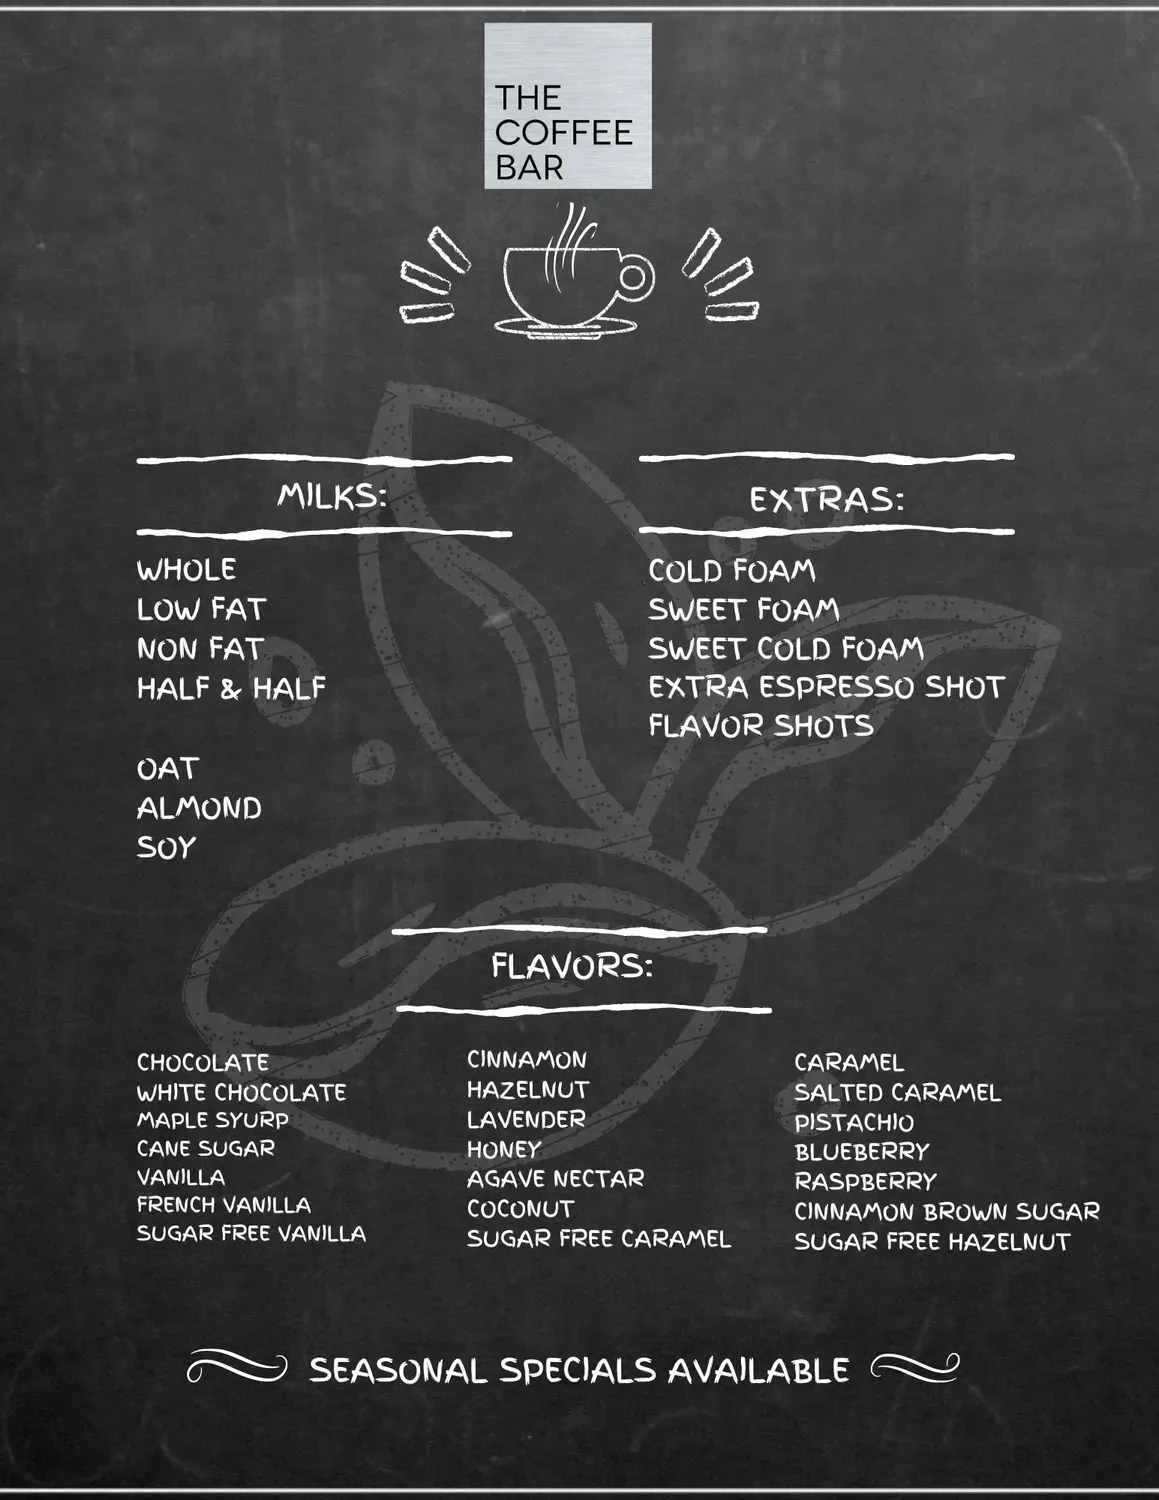 THE
COFFEE
BAR
MILKS:
WHOLE
LOW FAT
NON FAT
HALF & HALF
OAT
ALMOND
SOY
EXTRAS:
COLD FOAM
SWEET FOAM
SWEET COLD FOAM
EXTRA ESPRESSO SHOT
FLAVOR SHOTS
FLAVORS:
CHOCOLATE
WHITE CHOCOLATE
MAPLE SYURP
CANE SUGAR
VANILLA
FRENCH VANILLA
SUGAR FREE VANILLA
CINNAMON
HAZELNUT
LAVENDER
HONEY
AGAVE NECTAR
COCONUT
SUGAR FREE CARAMEL
CARAMEL
SALTED CARAMEL
PISTACHIO
BLUEBERRY
RASPBERRY
CINNAMON BROWN SUGAR
SUGAR FREE HAZELNUT
SEASONAL SPECIALS AVAILABLE